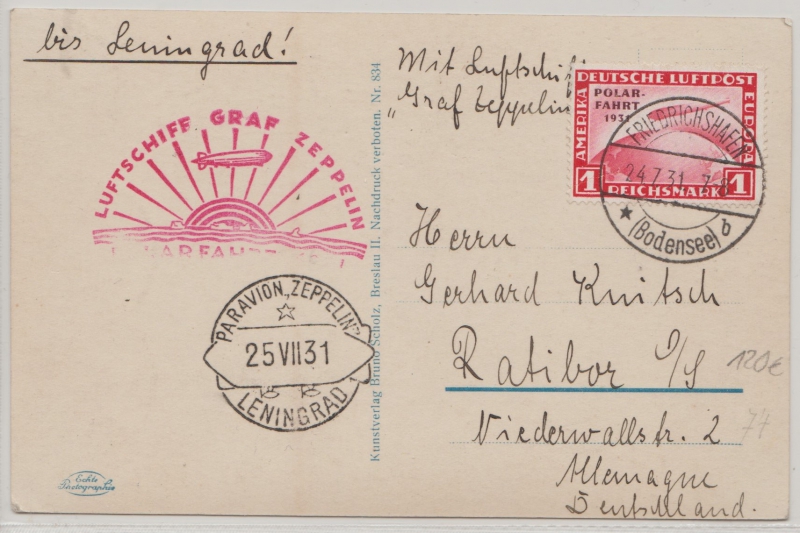 bis Leningrad!
Mit Luftschiff
„Graf Zeppelin
DEUTSCHE LUFTPOST
AMERIKA
EUROPA
POLAR-
FAHRT
1931
1 REICHSMARK 1
FRIEDRICHSHAFEN
24.7.31. 7-8
(Bodensee) b
LUFTSCHIFF GRAF ZEPPELIN
POLARFAHRT
PARAVION „ZEPPELIN"
25 VII 31
LENINGRAD
Kunstverlag Bruno Scholz, Breslau II. Nachdruck verboten. Nr. 834
Herrn
Gerhard Knitsch
Ratibor O/S
120€
Niederwallstr. 2
77
Allemagne
Deutschland.
Echte
Photographie